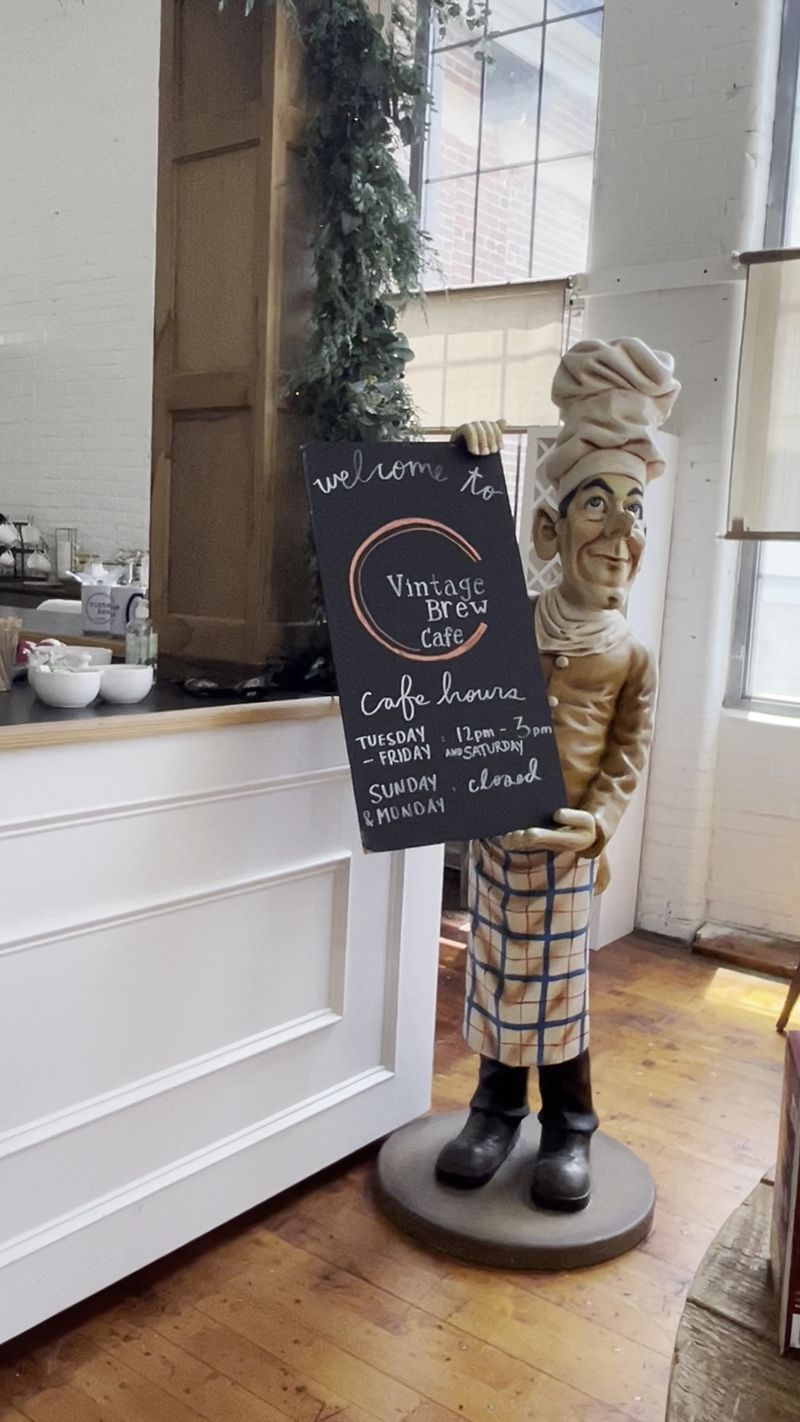 welcome to
Vintage
Brew
Cafe
cafe hours
TUESDAY : 12pm - 3pm
- FRIDAY AND SATURDAY
SUNDAY . closed
& MONDAY